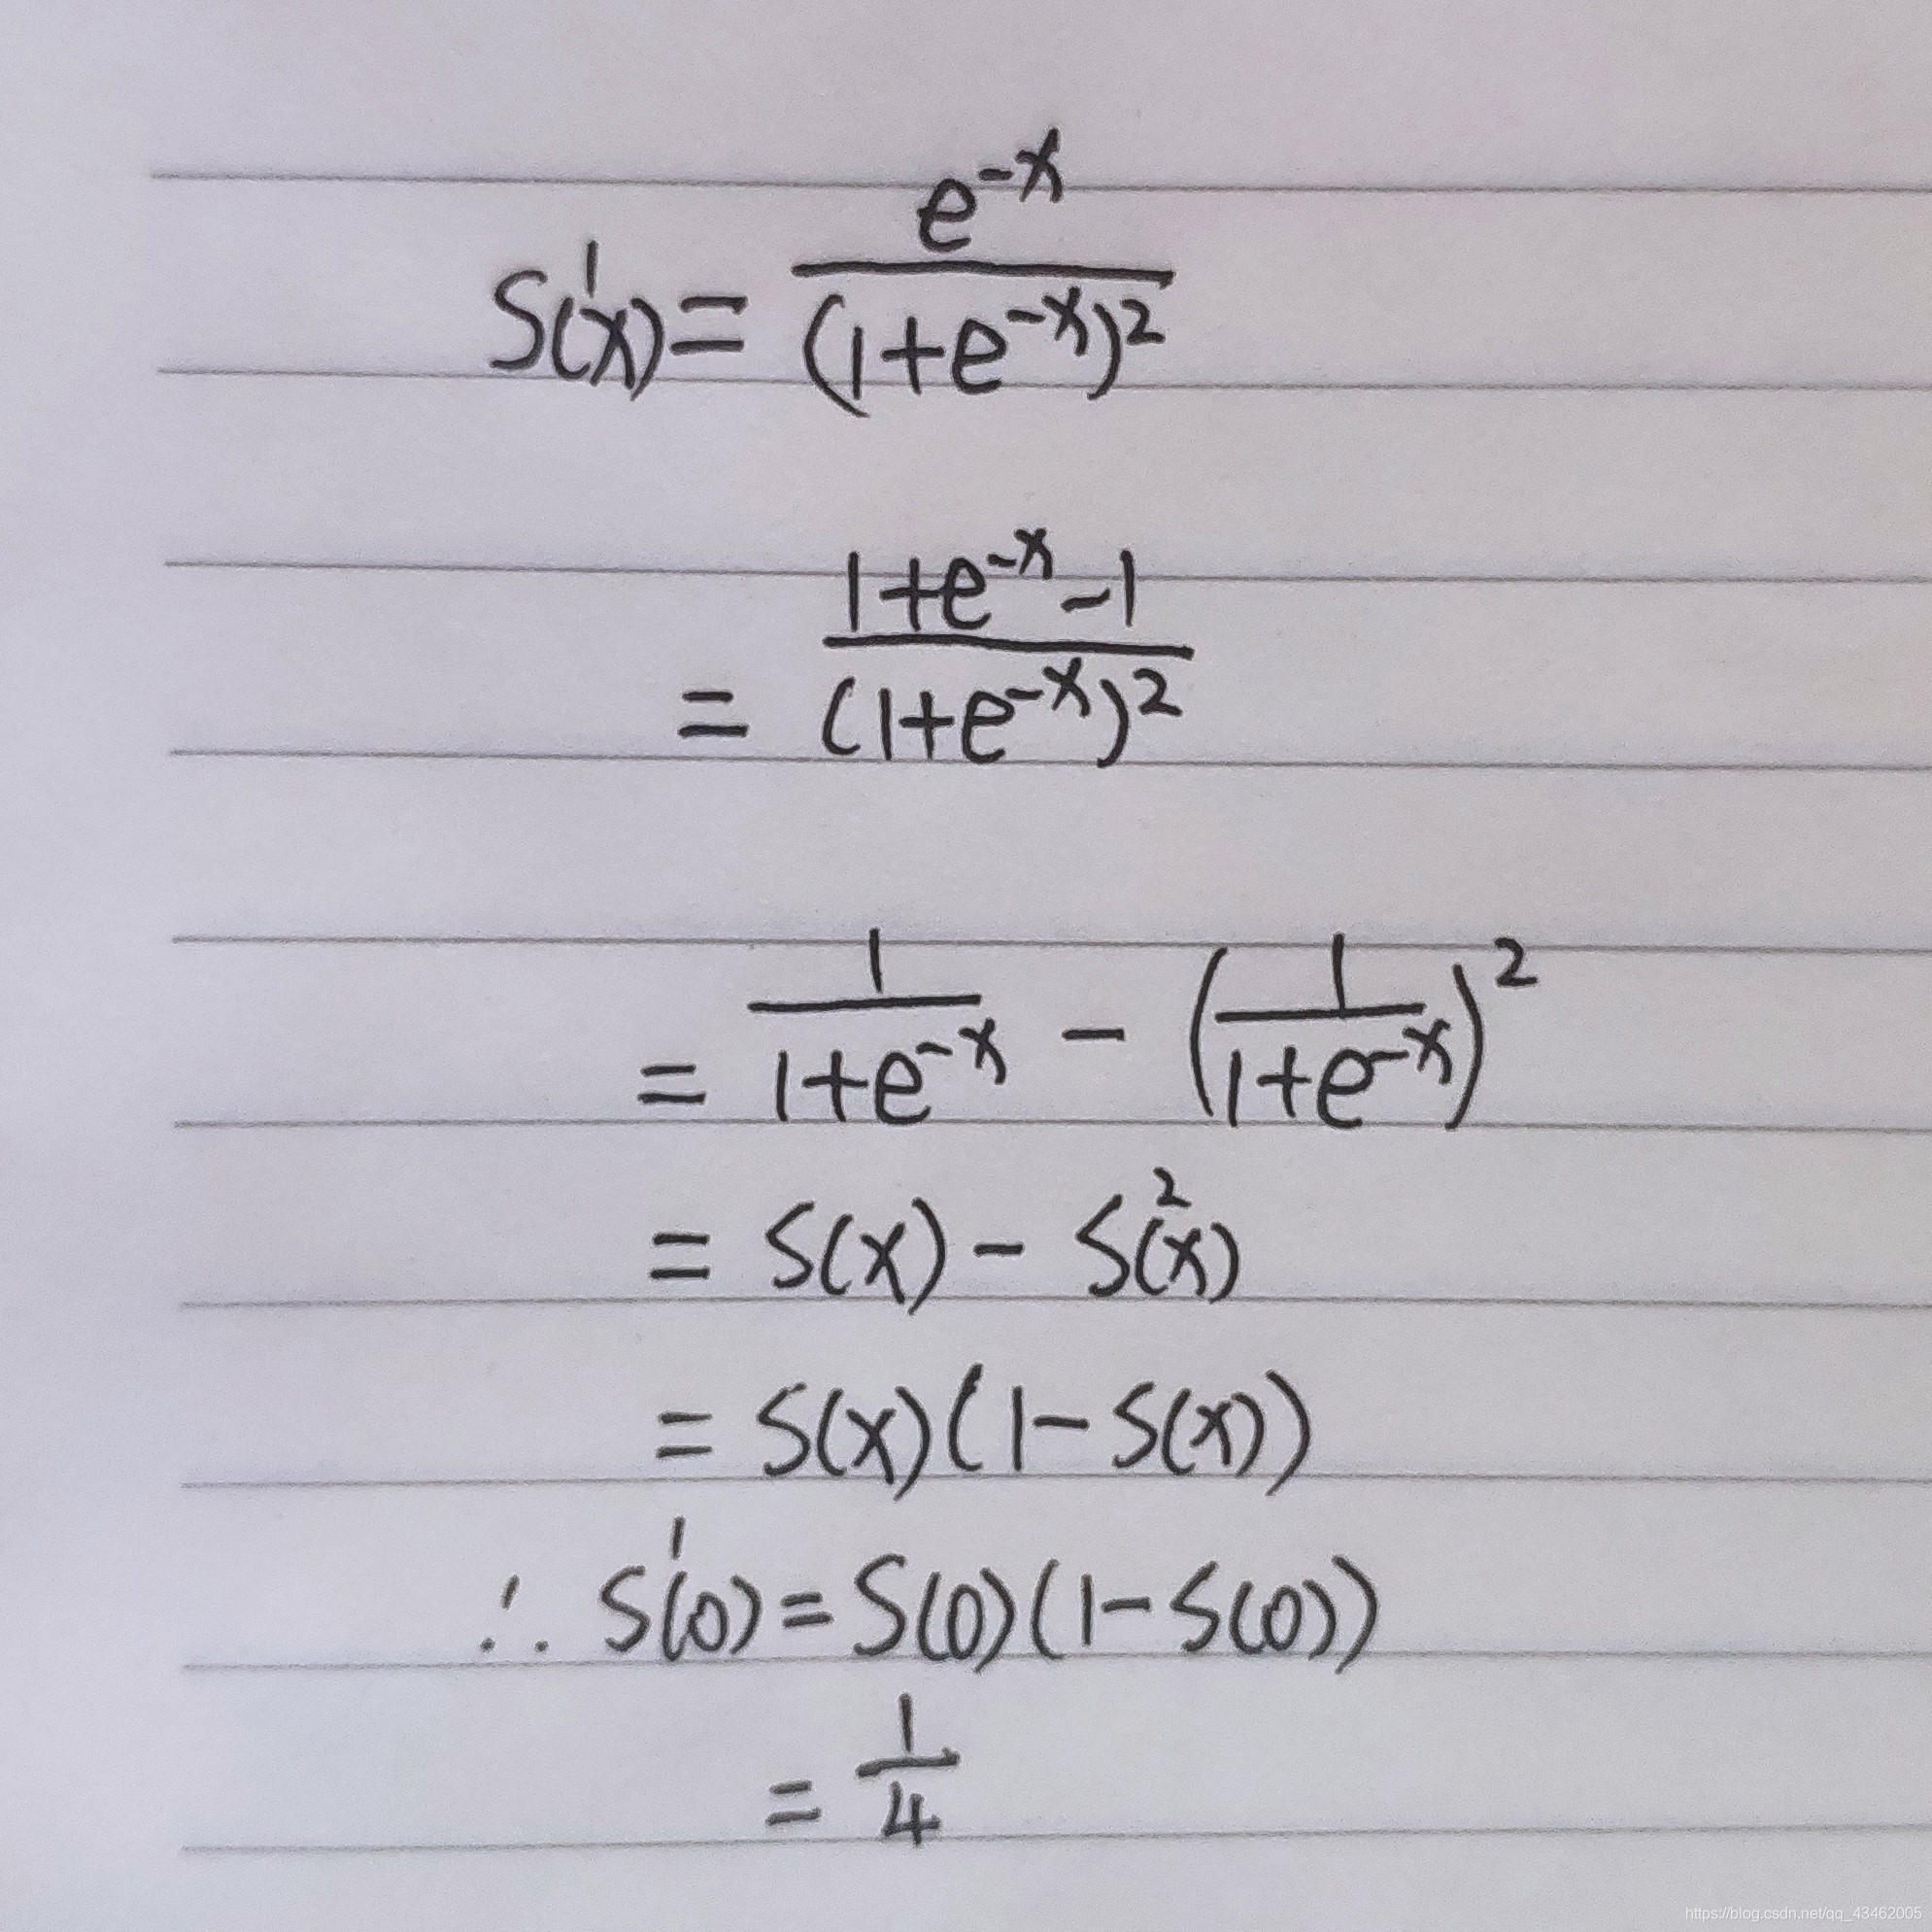 S'(x) = e^{-x} / (1+e^{-x})^2
= 1+e^{-x}-1 / (1+e^{-x})^2
= 1 / 1+e^{-x} - (1 / 1+e^{-x})^2
= S(x) - S^2(x)
= S(x)(1-S(x))
∴ S'(0) = S(0)(1-S(0))
= 1/4
https://blog.csdn.net/qq_43462005